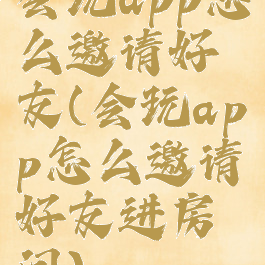 会玩app怎
么邀请好
友(会玩ap
p怎么邀请
好友进房
间)